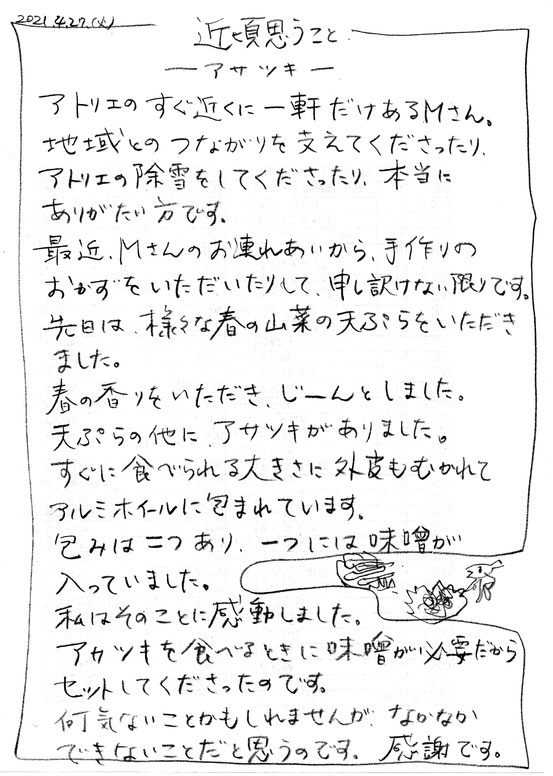 2021.4.27.(火)
近頃思うこと
―アサツキ―
アトリエのすぐ近くに一軒だけあるMさん。
地域とのつながりを支えてくださったり、
アトリエの除雪をしてくださったり、本当に
ありがたい方です。
最近、Mさんのお連れあいから、手作りの
おかずをいただいたりして、申し訳けない限りです。
先日は、様々な春の山菜の天ぷらをいただき
ました。
春の香りをいただき、じーんとしました。
天ぷらの他に、アサツキがありました。
すぐに食べられる大きさに外皮もむかれて
アルミホイールに包まれています。
包みは二つあり、一つには味噌が
入っていました。
私はそのことに感動しました。
アサツキを食べるときに味噌が必要だから
セットしてくださったのです。
何気ないことかもしれませんが、なかなか
できないことだと思うのです。感謝です。